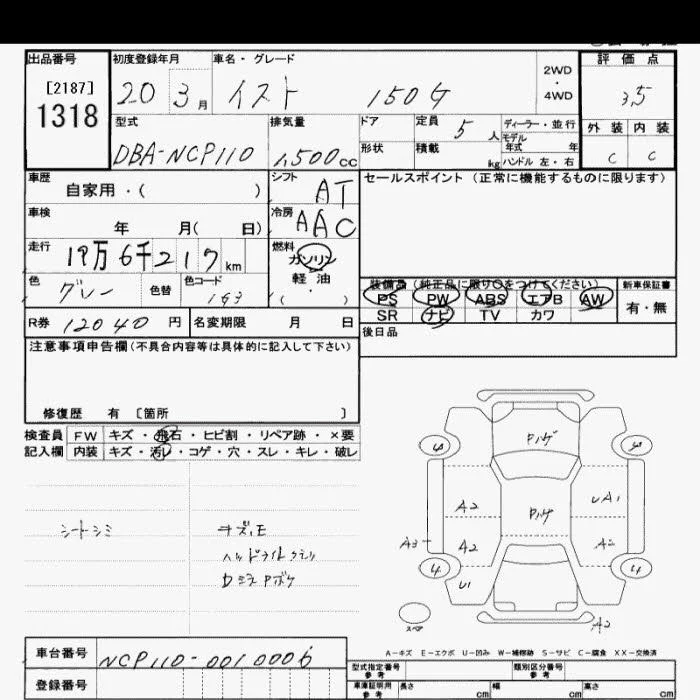 出品番号 初度登録年月 車名・グレード 評価点
[2187]
1318
20 3月 イスト 150G
2WD
・
4WD
3.5
型式 排気量 ドア 定員 5人 ディーラー・並行
モデル
年式 年
外装 内装
DBA-NCP110 1,500cc 形状 積載 kg ハンドル 左・右
C C
車歴 シフト セールスポイント (正常に機能するものに限ります)
自家用・( ) AT
車検 冷房
年 月( 日) AAC
走行 燃料
19万6千217km ガソリン
軽油
色 色替 色コード
グレー 163
装備品 (純正品に限り○をつけてください) 新車保証書
PS PW ABS エアB AW 有・無
SR ナビ TV カワ
R券 12040円 名変期限 月 日
後日品
注意事項申告欄(不具合内容等は具体的に記入して下さい)
修復歴 有 〔箇所 〕
検査員 FW キズ・飛石・ヒビ割・リペア跡・×要
記入欄 内装 キズ・汚レ・コゲ・穴・スレ・キレ・破レ
シートシミ
キズ、E
ヘッドライトクモリ
Pハゲ
Pハゲ
A2 A2 U1
A3
UA1
A2
A2
4 4
スペア
A-キズ E-エクボ U-凹み W-補修跡 S-サビ C-腐食 XX-交換済
車台番号 NCP110-0010006
登録番号
型式指定番号 類別区分番号
参考 参考
車庫証明用 長さ 幅 高さ
参考 cm cm cm